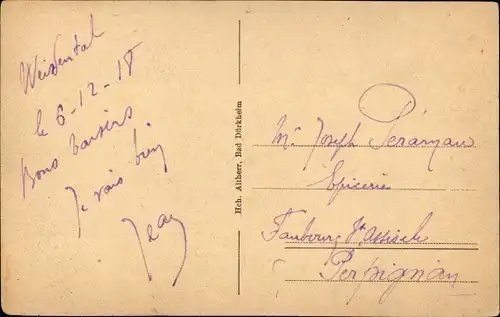 Weidental
le 6-12-18
Bons baisers
Je vais bien
Jean
Hch. Altherr, Bad Dürkheim
Mr Joseph
Epicerie
Faubourg St Assiscle
Perpignan